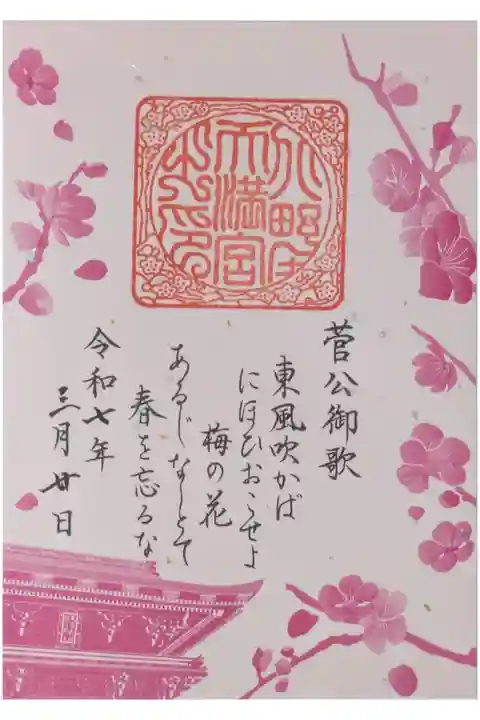 天満宮
菅公御歌
東風吹かば
にほひおこせよ
梅の花
あるじなしとて
春を忘るな
令和七年
三月廿日